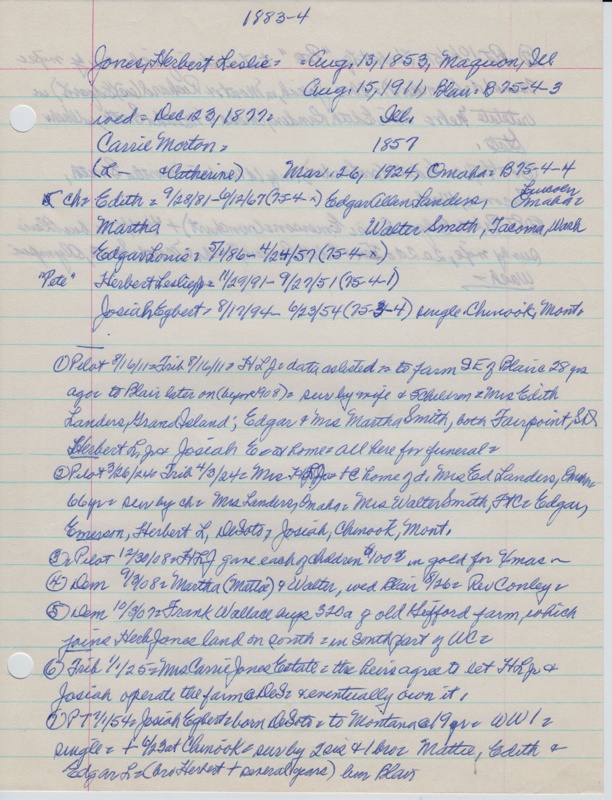 1883-4
Jones, Herbert Leslie = = Aug. 13, 1853, Maquon, Ill
Aug. 15, 1911, Blair = B 75-4-3
wed = Dec 23, 1877 = Ill.
Carrie Morton = 1857
(L- & Catherine) Mar. 26, 1924, Omaha = B75-4-4
ch = Edith = 9/28/81 - 6/12/67 (75-4-x) Edgar Allen Landers, Omaha =
Martha Walter Smith, Tacoma, Wash
Edgar Louis = 5/1/86 - 4/24/57 (75-4-x)
"Pete" Herbert Leslie Jr = 11/29/91 - 9/27/51 (75-4-1)
Josiah Egbert = 8/17/94 - 6/23/54 (75-3-4) single = Chinook, Mont.
① Pilot 8/16/11 = Trib 8/16/11 = H L J = data as listed = to farm S E of Blair = 28 yrs
ago = to Blair later on (by 1908) = sur by wife & 5 children = Mrs Edith
Landers, Grand Island; Edgar & Mrs Martha Smith, both Fairpoint, S D;
Herbert L, Jr & Josiah E at home = all here for funeral =
② Pilot 3/26/24 = Trib 4/3/24 = Mrs H L J = home of d. Mrs Ed Landers, Omaha =
66 yr = sur by ch = Mrs Landers, Omaha = Mrs Walter Smith, Ft C = Edgar,
Emerson, Herbert L, DeSoto, Josiah, Chinook, Mont.
③ Pilot 12/30/08 = H L J gave each of children $100 in gold for Xmas ~
④ Dem 9/3/08 = Martha (Matta) & Walter, wed Blair 8/26 = Rev Conley =
⑤ Dem 10/3/07 = Frank Wallace buys 320a of old Gifford farm, which
joins Herb Jones land on south = in South part of WC =
⑥ Trib 1/1/25 = Mrs Carrie Jones Estate = the heirs agree to let H L Jr &
Josiah operate the farm @ DeS = & eventually own it.
⑦ P T 7/1/54 = Josiah Egbert = born DeSoto = to Montana @ 19 yr = WW 1 =
single = + 6/23 at Chinook = sur by 2 sis & 1 bro = Mattie, Edith &
Edgar L = (bro Herbert + several years) bur Blair